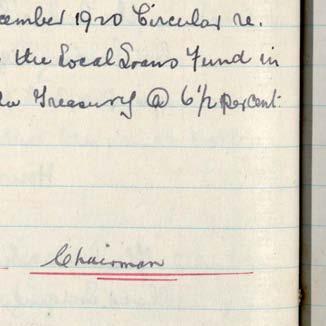 cember 1920 Circular re.
the Local Loans Fund in
Treasury @ 6 1/2 percent.
Chairman